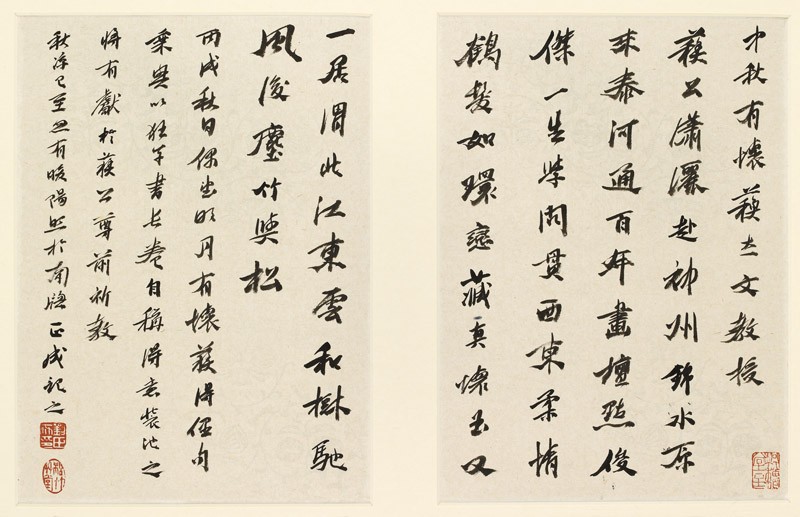 中秋有懷蘇立文教授
蘇公瀟灑赴神州錦水原
來泰河通百年畫壇點俊
傑一生學問貫西東柔情
鶴髮如環戀藏真燦玉又
一居渭北江東雲和樹馳
風後塵竹與松
丙戌秋日偶出明月有懷蘇得俚句
乘興以狂草書長卷自稱得意裝池之
將有獻於蘇公尊前祈教
秋涼已至且有暖陽照於南牕正成記之